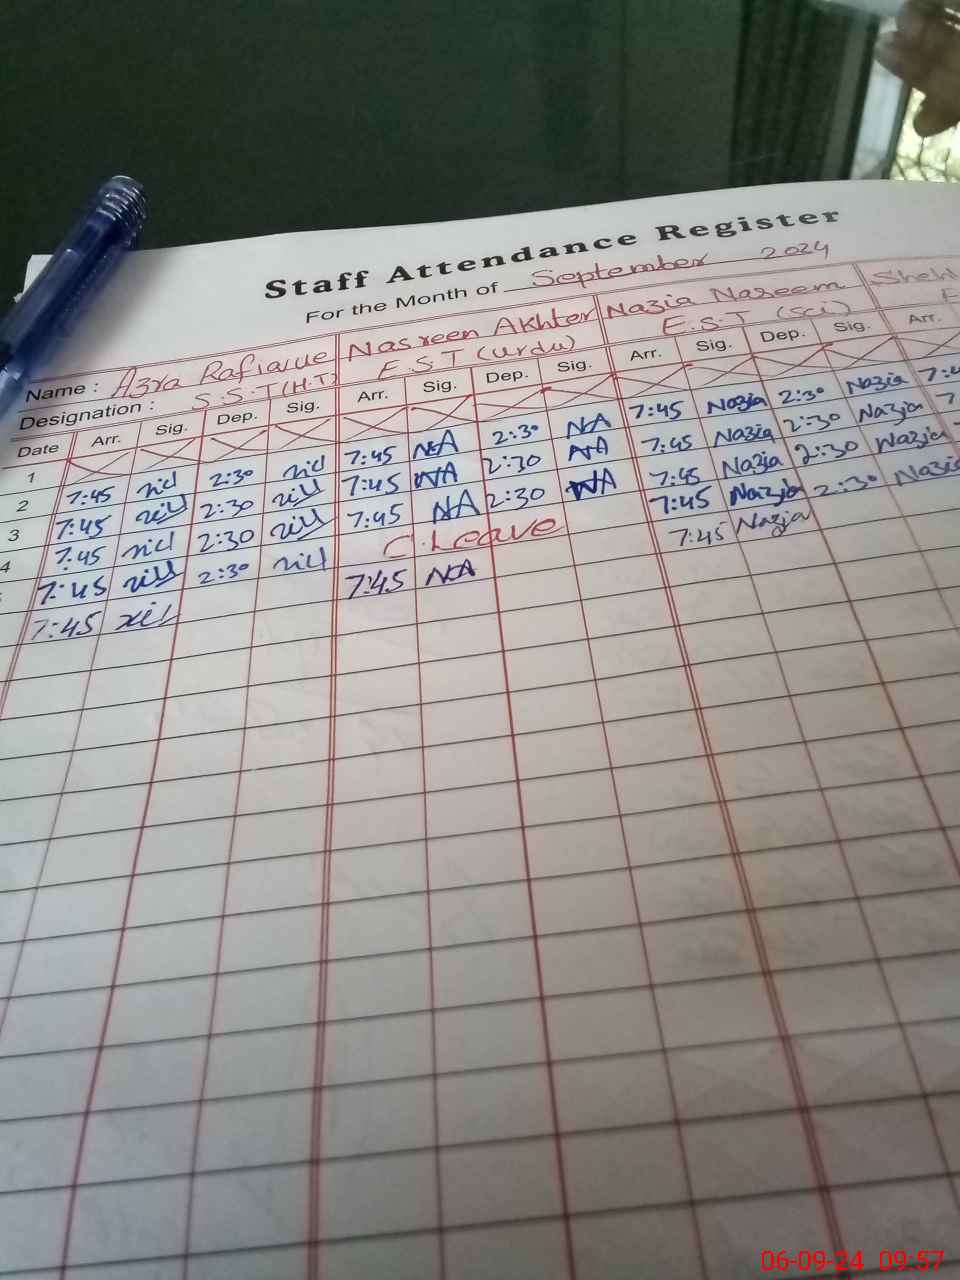 Staff Attendance Register
For the Month of September 2024
Name : Azra Nasreen Akhter Nazia Naseem
Designation : S.S.T (H.T) E.S.T (Urdu) E.S.T (Sci)
Date Arr. Sig. Dep. Sig. Arr. Sig. Dep. Sig. Arr. Sig. Dep. Sig. Arr.
1
2 7:45 2:30 7:45 NA 2:30 NA 7:45 Nazia 2:30 Nazia
3 7:45 2:30 7:45 NA 2:30 NA 7:45 Nazia 2:30 Nazia
4 7:45 2:30 7:45 NA 2:30 NA 7:45 Nazia 2:30 Nazia
7:45 2:30 C. Leave 7:45 Nazia 2:30 Nazia
7:45 7:45 NA 7:45 Nazia
06-09-24 09:57